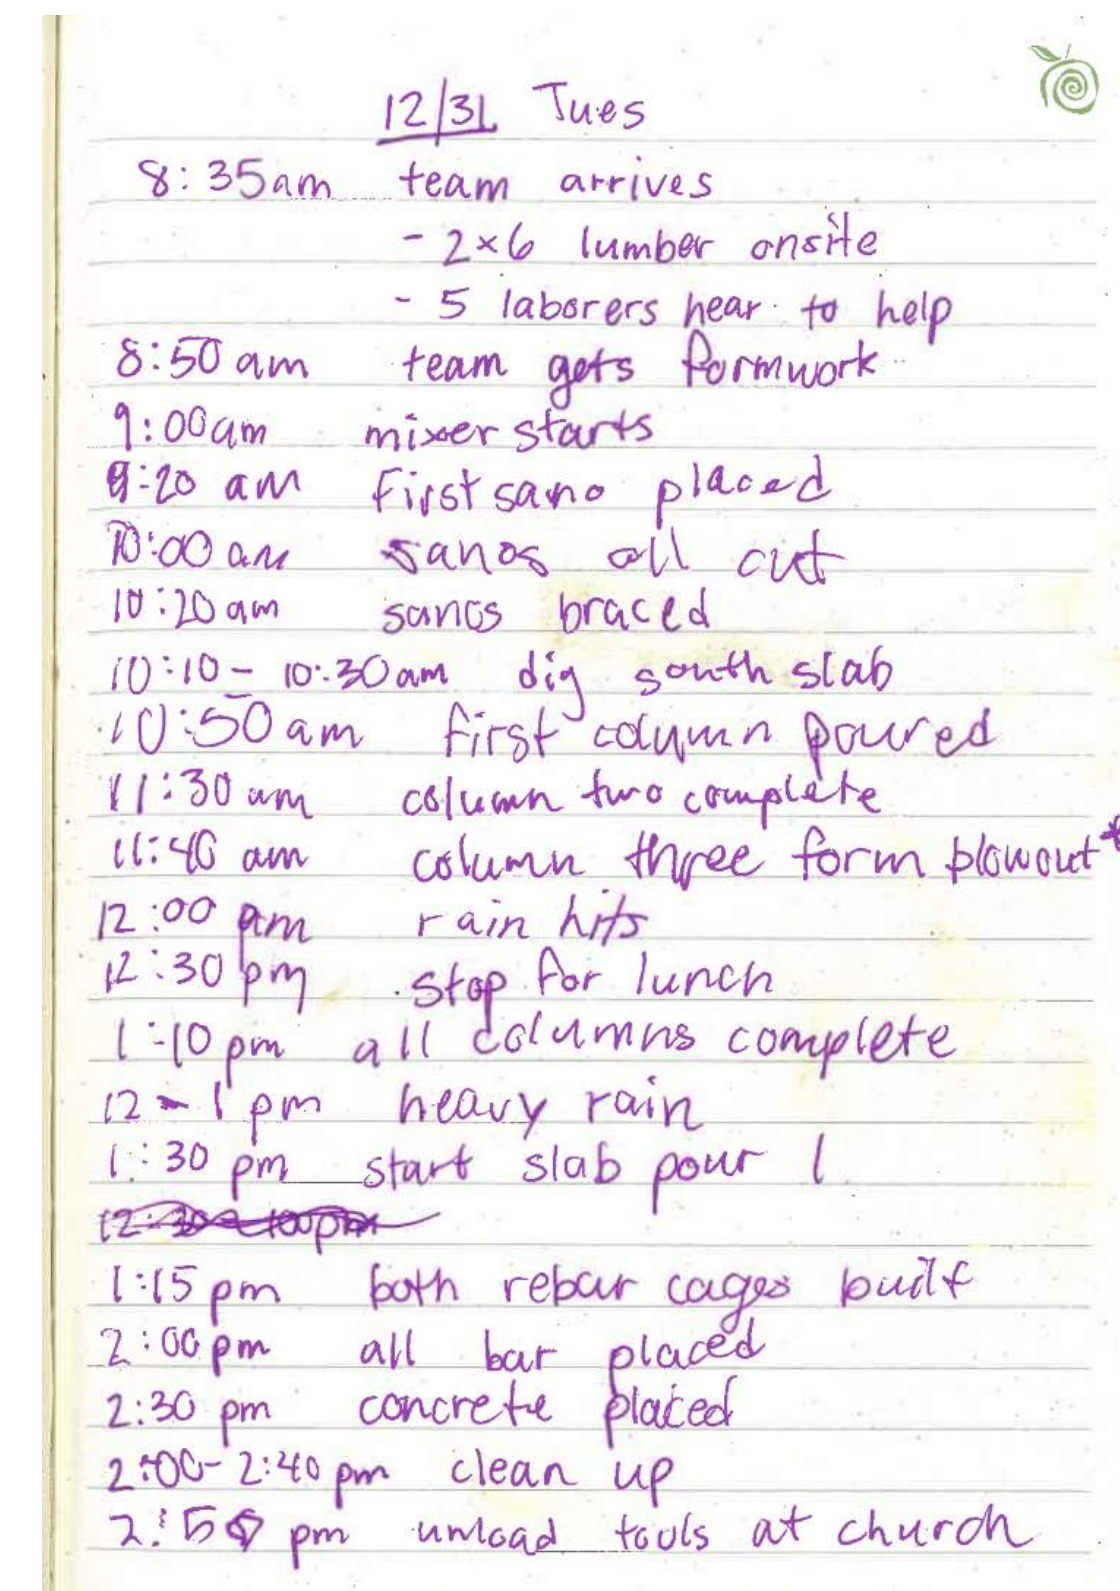 12/31 Tues
8:35am team arrives
- 2x6 lumber onsite
- 5 laborers hear to help
8:50 am team gets formwork
9:00am mixer starts
9:20 am first sano placed
10:00 am sanos all cut
10:20am sanos braced
10:10 - 10:30am dig south slab
10:50 am first column poured
11:30 am column two complete
11:40 am column three form blowout*
12:00 pm rain hits
12:30 pm stop for lunch
1:10 pm all columns complete
12 - 1 pm heavy rain
1:30 pm start slab pour 1
12:30 - 1:00pm
1:15 pm both rebar cages built
2:00 pm all bar placed
2:30 pm concrete placed
2:00 - 2:40 pm clean up
2:50 pm unload tools at church